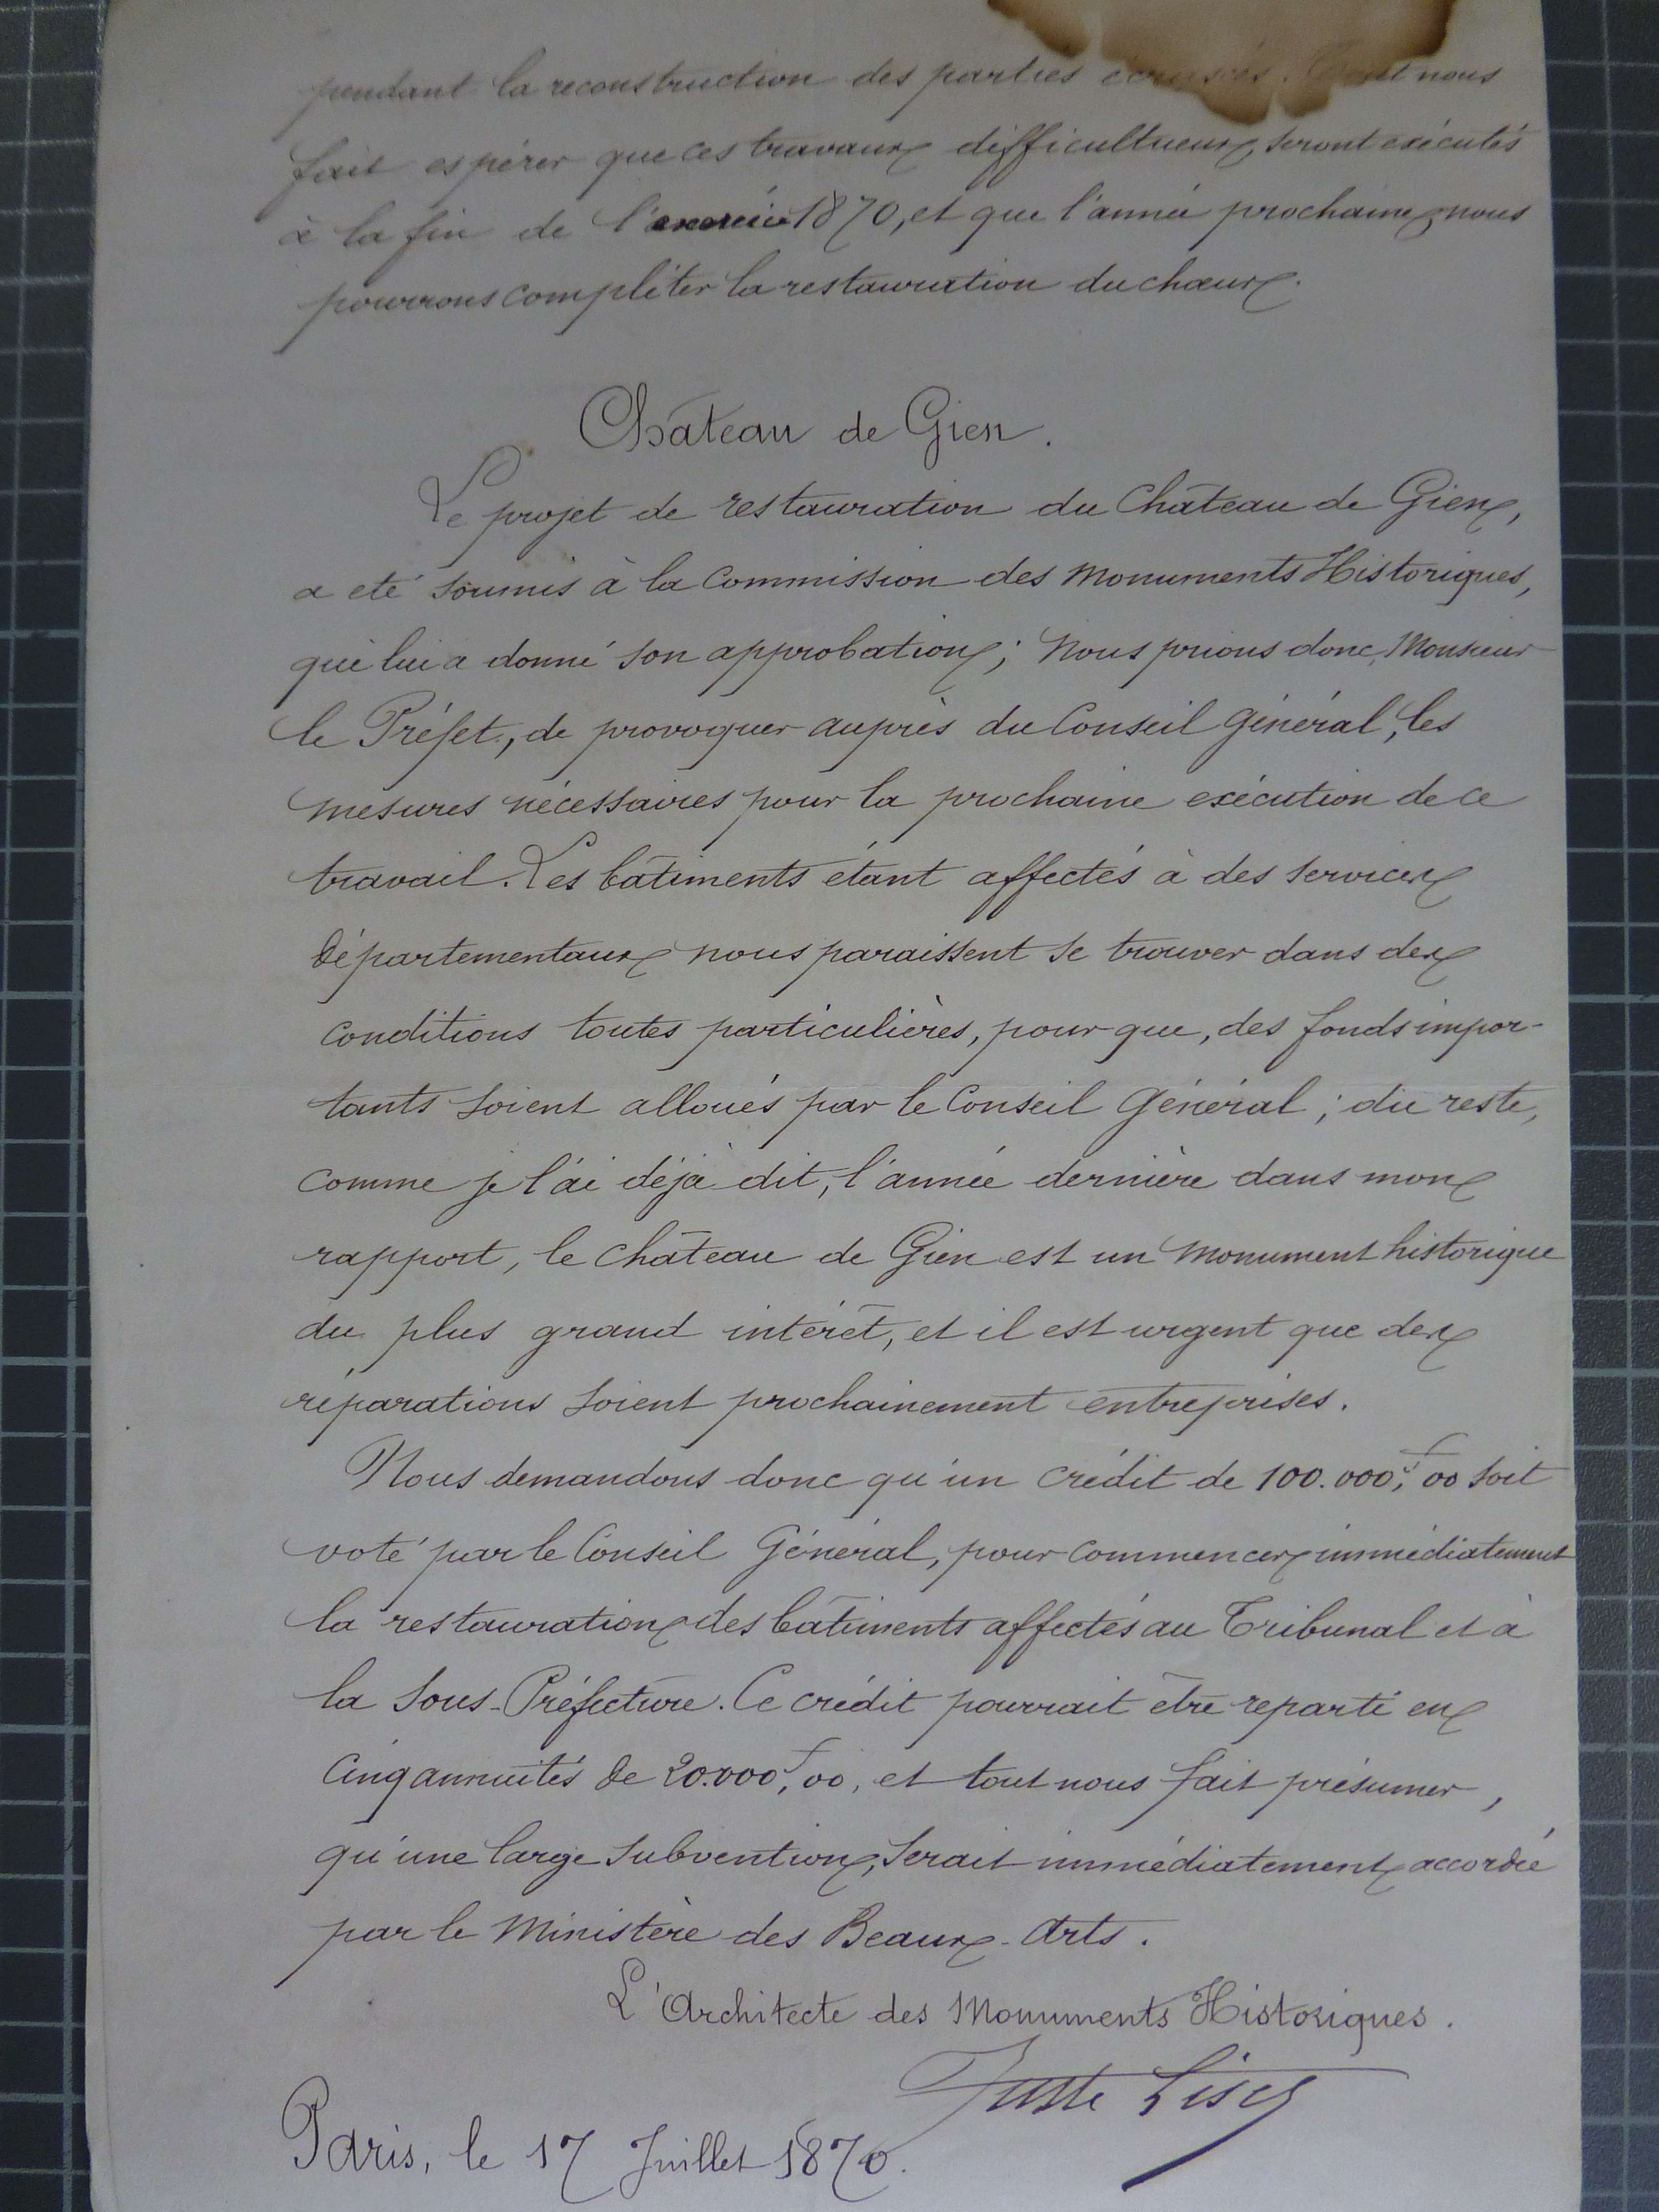 pendant la reconstruction des parties écrasées. Tout nous
fait espérer que ces travaux difficultueux, seront exécutés
à la fin de l'exercice 1870, et que l'année prochaine, nous
pourrons compléter la restauration du chœur.
Château de Gien.
Le projet de restauration du Château de Gien,
a eté soumis à la Commission des Monuments Historiques,
qui lui a donné son approbation; nous prions donc, Monsieur
le Préfet, de provoquer auprès du Conseil Général, les
mesures nécessaires pour la prochaine exécution de ce
travail. Les bâtiments étant affectés à des services
départementaux nous paraissent se trouver dans des
conditions toutes particulières, pour que, des fonds impor-
tants soient alloués par le Conseil Général; du reste,
comme je l'ai déjà dit, l'année dernière dans mon
rapport, le château de Gien est un monument historique
du plus grand intérêt, et il est urgent que des
réparations soient prochainement entreprises.
Nous demandons donc qu'un crédit de 100.000f,00 soit
voté par le Conseil Général, pour commencer immédiatement
la restauration des bâtiments affectés au Tribunal et à
la Sous-Préfecture. Ce crédit pourrait être reparti en
cinq annuités de 20.000f,00, et tout nous fait présumer,
qu'une large subvention, serait immédiatement accordée
par le Ministère des Beaux-Arts.
L'Architecte des Monuments Historiques.
Juste Lisch
Paris, le 17 Juillet 1870.